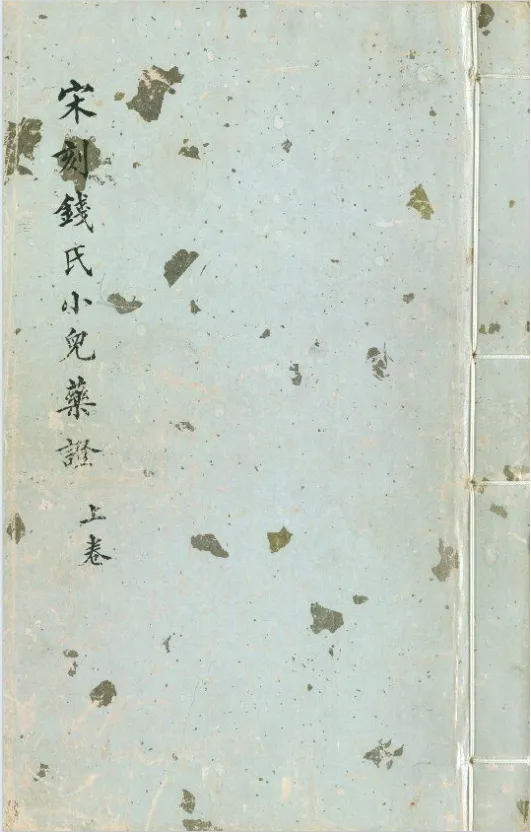 宋刻錢氏小兒藥證
上卷